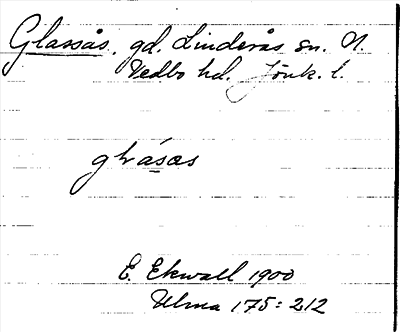 Glassås. gd. Linderås sn. N.
Vedbo hd. Jönk. l.
glásas
E. Ekwall 1900
Ulma 175:212